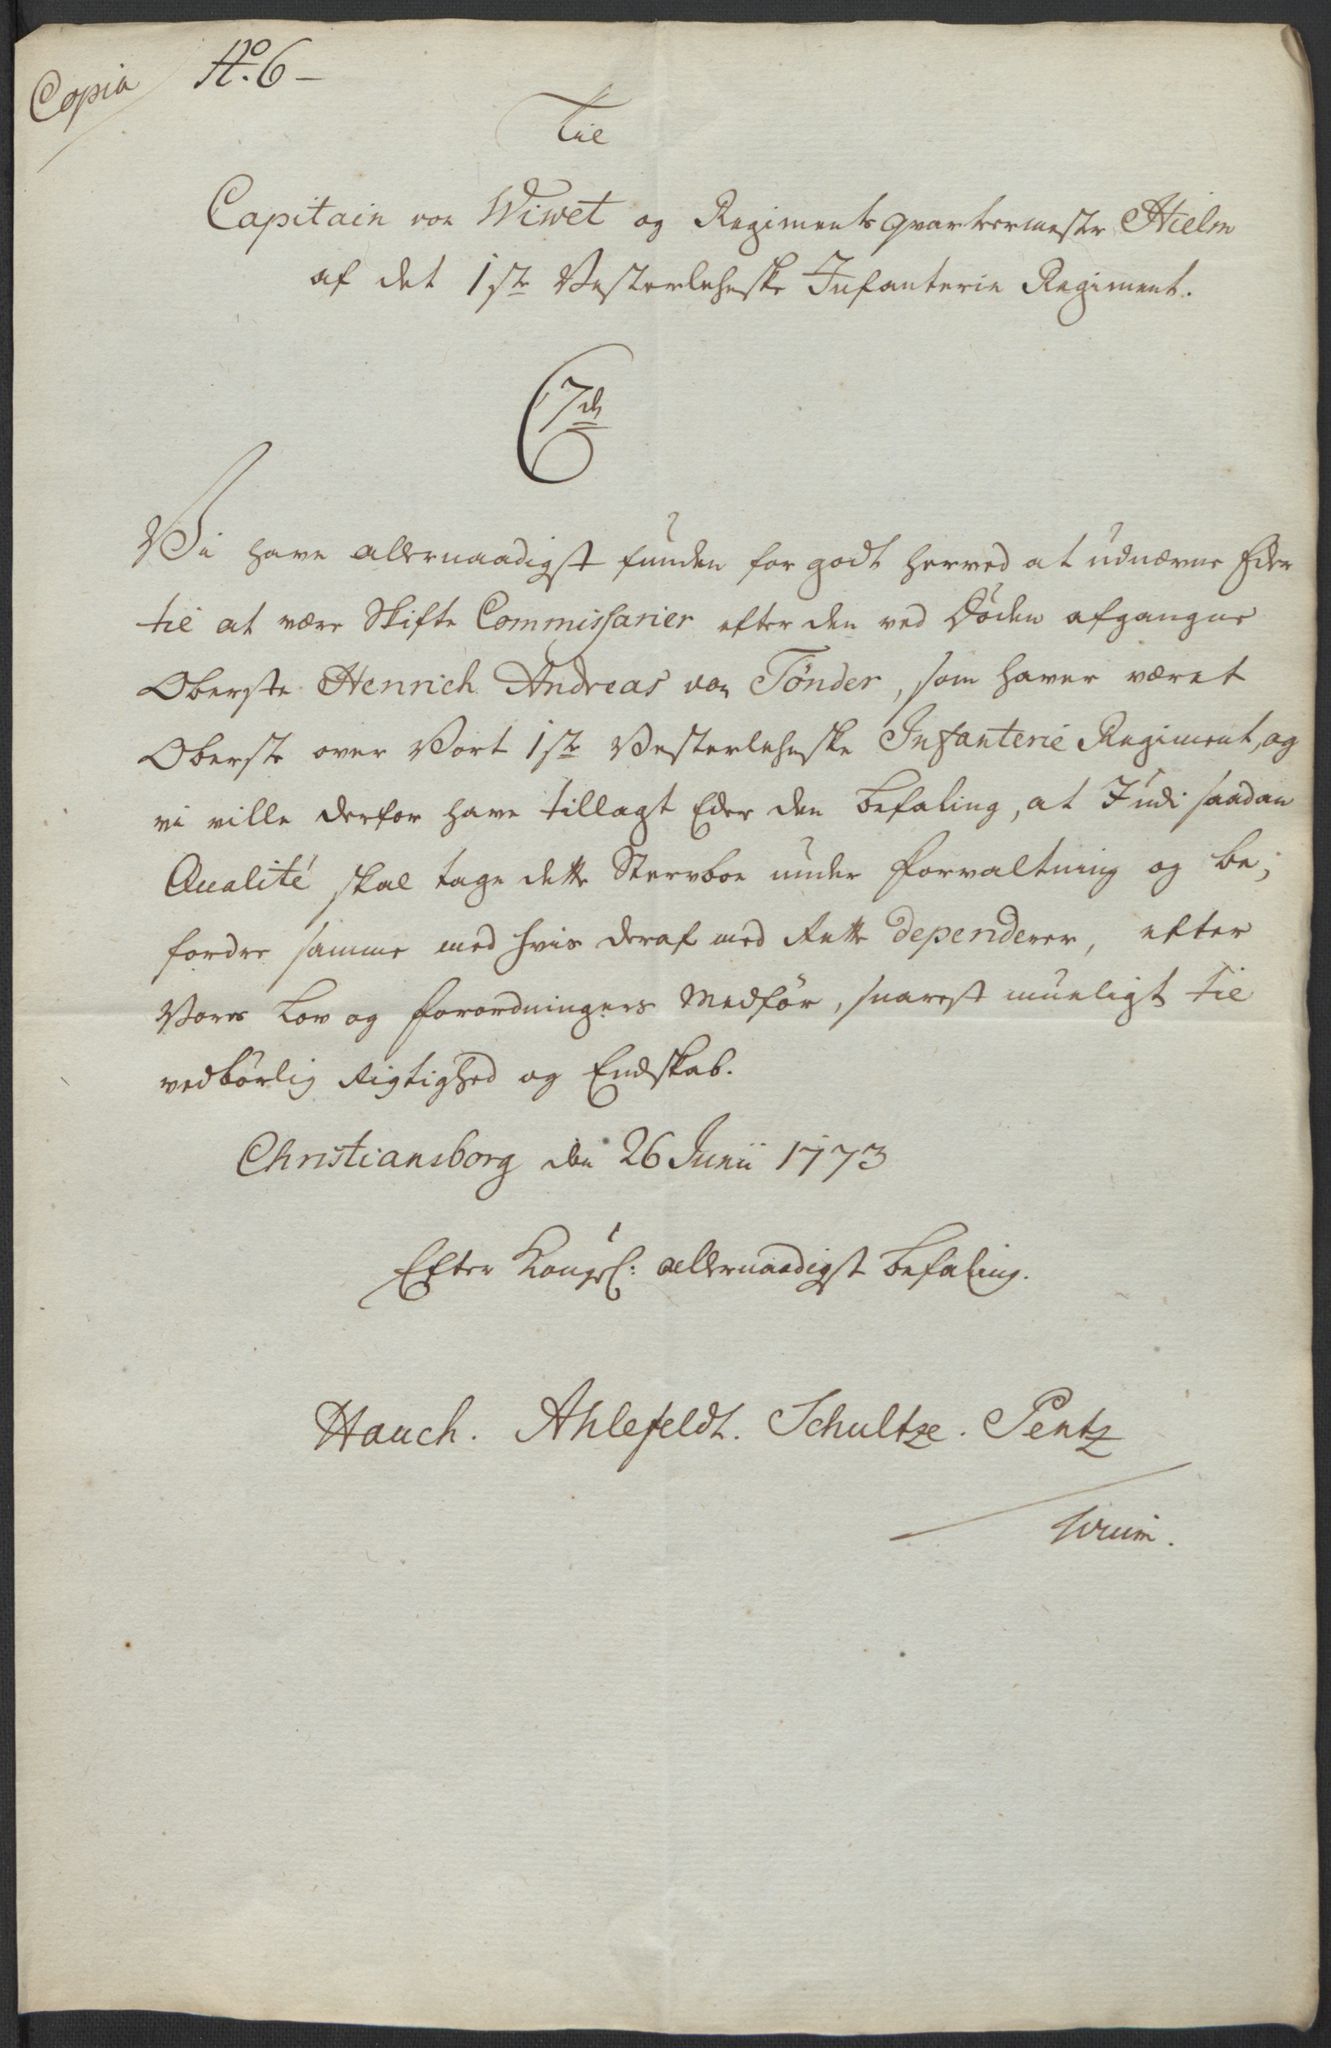 Copia
No. 6 –
Til
Capitain von Wiwet og Regimentsqvartermester Hielm
af det 1ste Vesterlehnske Infanterie Regiment.
C 7de
Vi have allernaadigst funden for godt herved at udnævne Eder
til at være Skifte Commissarier efter den ved Døden afgangne
Oberste Henrich Andreas von Tønder, som haver været
Oberste over Vort 1ste Vesterlehnske Infanterie Regiment, og
vi ville derfor have tillagt Eder den Befaling, at I udi saadan
Qualité skal tage dette Stervboe under Forvaltning og be-
fordre samme med hvis deraf med Rette dependerer, efter
Vores Lov og Forordningers Medfør, snarest mueligt til
vedbørlig Rigtighed og Endskab.
Christiansborg den 26 Junii 1773
Efter Kongel: allernaadigst Befaling.
Hauch. Ahlefeldt. Schultze. Pentz